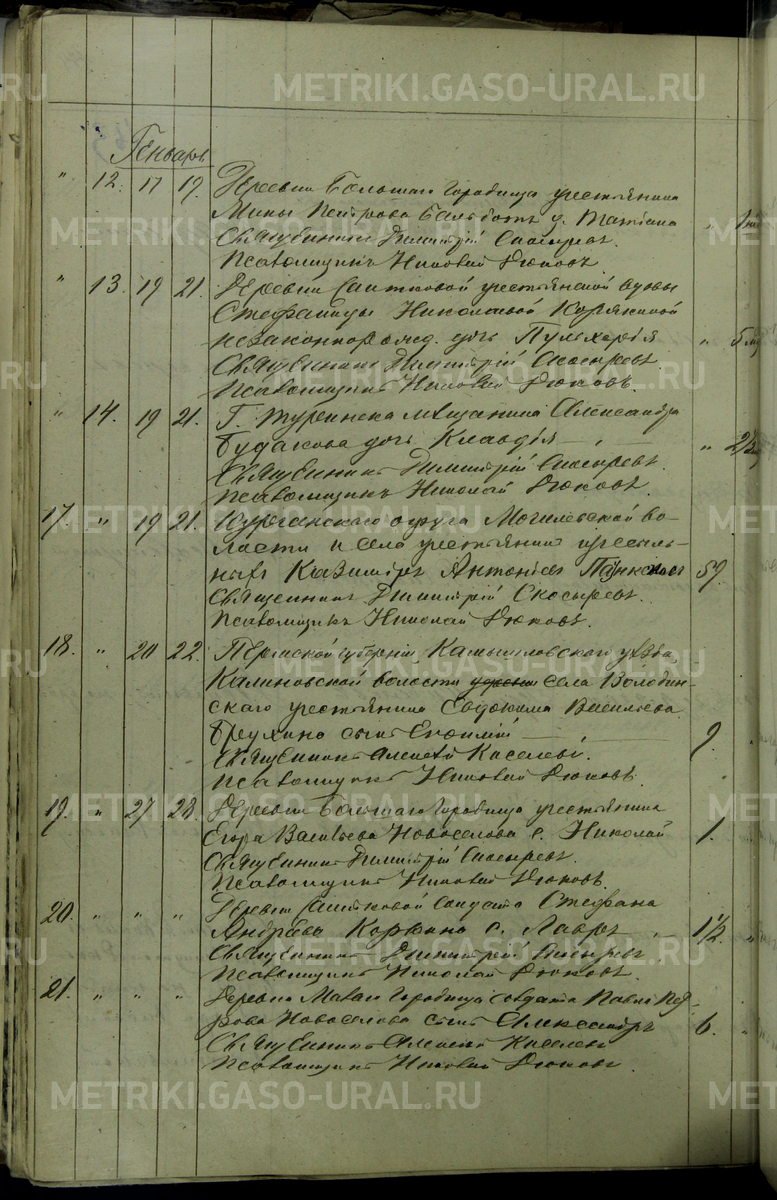 METRIKI.GASO-URAL.RU
Генварь
" 12. 17 19 Деревни Большаго Городища крестьянина
Мины Петрова д. Татіана
Священникъ Димитрій Скосыревъ.
Псаломщикъ Николай Дюковъ.
" 13. 19 21. Деревни Саитковой крестьянской вдовы
Стефаниды Николаевой Корякиной
незаконнорожд. дочь Пульхерія " 5
Священникъ Димитрій Скосыревъ.
Псаломщикъ Николай Дюковъ.
" 14. 19 21. Г. Туринска мѣщанина Александра
Будакова дочь Клавдія "
Священникъ Димитрій Скосыревъ.
Псаломщикъ Николай Дюковъ.
17. " 19 21. Курганскаго округа Могилевской во-
лости и села крестьянинъ
Казимиръ Антоніевъ 57.
Священникъ Димитрій Скосыревъ.
Псаломщикъ Николай Дюковъ.
18. " 20 22. Пермской губерніи, Камышловскаго уѣзда,
Калиновской волости села Володин-
скаго крестьянина Евдокима Васильева
сынъ Евфимій 9.
Священникъ Алексѣй Киселевъ.
Псаломщикъ Николай Дюковъ.
19. " 27 28. Деревни Большаго Городища крестьянина
Егора Васильева Новоселова с. Николай 1.
Священникъ Димитрій Скосыревъ.
Псаломщикъ Николай Дюковъ.
20. " " " Деревни Саитковой солдата Стефана
Андреева Корякина с. Лавръ 1½
Священникъ Димитрій Скосыревъ.
Псаломщикъ Николай Дюковъ.
21. " " " Деревни Малаго Городища солдата Павла Пет-
рова Новоселова сынъ Александръ 6.
Священникъ Алексѣй Киселевъ
Псаломщикъ Николай Дюковъ.